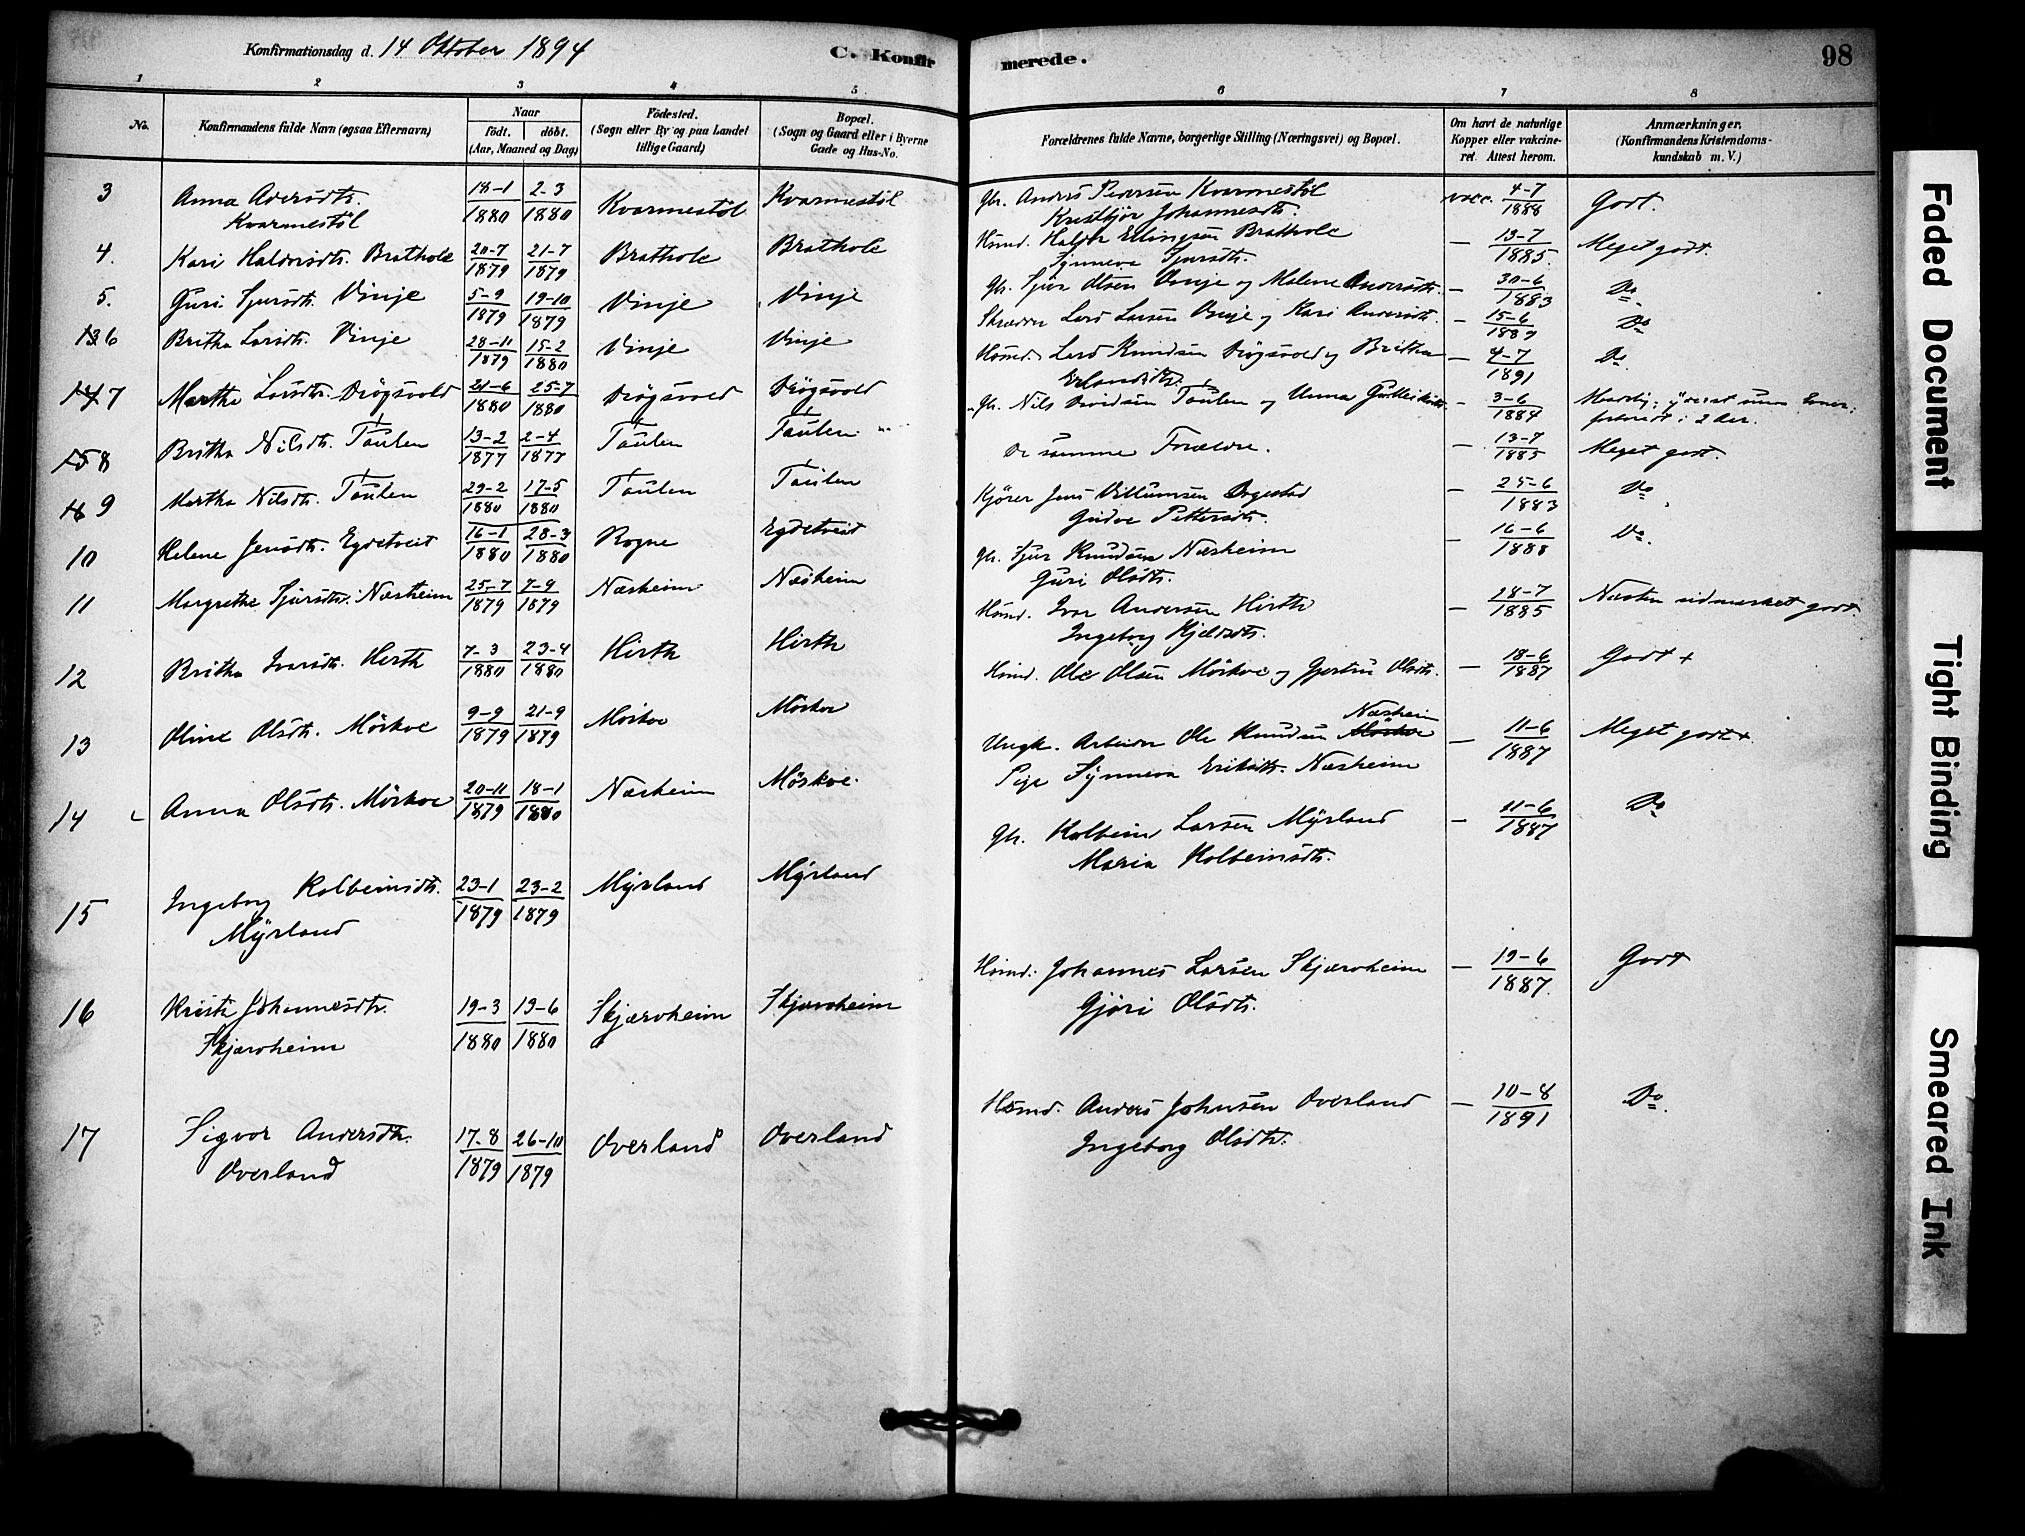 Konfirmationsdag d. 14 Oktober 1894
C. Konfir
merede.
98
1 2 3 4 5 6 7 8
No.
Konfirmandens fulde Navn (ogsaa Efternavn)
Naar
födt. döbt.
(Aar, Maaned og Dag)
Födested.
(Sogn eller By og paa Landet
tillige Gaard)
Bopæl.
(Sogn og Gaard eller i Byerne
Gade og Hus-No.
Forældrenes fulde Navne, borgerlige Stilling (Næringsvei) og Bopæl.
Om havt de naturlige
Kopper eller vakcine-
ret. Attest herom.
Anmærkninger.
(Konfirmandens Kristendoms-
kundskab m. V.)
3 Anna Andersdtr. 18-1 1880 2-3 1880 Kvarmestöl Kvarmestöl Gbr. Anders Pedersen Kvarmestöl vacc. 4-7 1888 Godt.
Kvarmestöl Johannesdtr.
4. Kari Haldorsdtr. Brathole 20-7 1879 21-7 1879 Brathole Brathole Hsmd. Haldor Ellingsen Brathole — 13-7 1885 Meget godt.
Synneva Sjursdtr.
5. Guri Sjursdtr. Vinje 5-9 1879 19-10 1879 Vinje Vinje Gbr. Sjur Olsen Vinje og Malene Andersdtr. — 30-6 1883 Do
6 Britha Larsdtr. Vinje 28-11 1879 15-2 1880 Vinje Vinje Skræder Lars Larsen Vinje og Kari Andersdtr. — 15-6 Do
7 Martha Larsdtr. Drögsvold 21-6 1880 25-7 1880 Drögsvold Drögsvold Hsmd. Lars Knudsen Drögsvold og Britha — 4-7 1891 Do
Erlandsdtr.
8 Britha Nilsdtr. Taulen 13-2 1877 2-4 1877 Taulen Taulen Gbr. Nils Davidsen Taulen og Anna — 3-6 1884
i 2 Aar.
9 Martha Nilsdtr. Taulen 29-2 1880 17-5 1880 Taulen Taulen De samme Forældre. — 13-7 1885 Meget godt.
10 Helene Jensdtr. Egdetveit 16-1 1880 28-3 1880 Rogne Egdetveit Kjörer Jens Villumsen — 25-6 1883 Do
Pettersdtr.
11 Margrethe Sjursdtr. Næsheim 25-7 1879 7-9 1879 Næsheim Næsheim Gbr. Sjur Knudsen Næsheim — 16-6 1888 Do.
Guri Olsdtr.
12 Britha Ivarsdtr. Hirth 7-3 1880 23-4 1880 Hirth Hirth Hsmd. Ivar Andersen Hirth — 28-7 1885 Næsten udmærket godt.
Ingeborg
13 Oline Olsdtr. Mörkve 9-9 1879 21-9 1879 Mörkve Mörkve Hsmd. Ole Olsen Mörkve og Gjertrud Olsdtr. — 18-6 1887 Godt +
14 Anna Olsdtr. Mörkve 20-11 1879 18-1 1880 Næsheim Mörkve Ungk. Arbeider Ole Knudsen Mörkve Næsheim — 11-6 1887 Meget godt +
Pige Synneva Eriksdtr. Næsheim
15 Ingeborg Kolbeinsdtr. 23-1 1879 23-2 1879 Myrland Myrland Gbr. Kolbein Larsen Myrland — 11-6 1887 Do
Myrland Maria Kolbeinsdtr.
16 Kristi Johannesdtr. 19-3 1880 13-6 1880 Skjærvheim Skjærvheim Hsmd. Johannes Larsen Skjærvheim — 19-6 1887. Godt
Skjærvheim Gjöri Olsdtr.
17 Sigvor Andersdtr. 17-8 1879 26-10 1879 Överland Överland Hsmd. Anders Johnsen Överland — 10-8 1891 Do
Överland Ingeborg Olsdtr.
Faded Document
Tight Binding
Smeared Ink